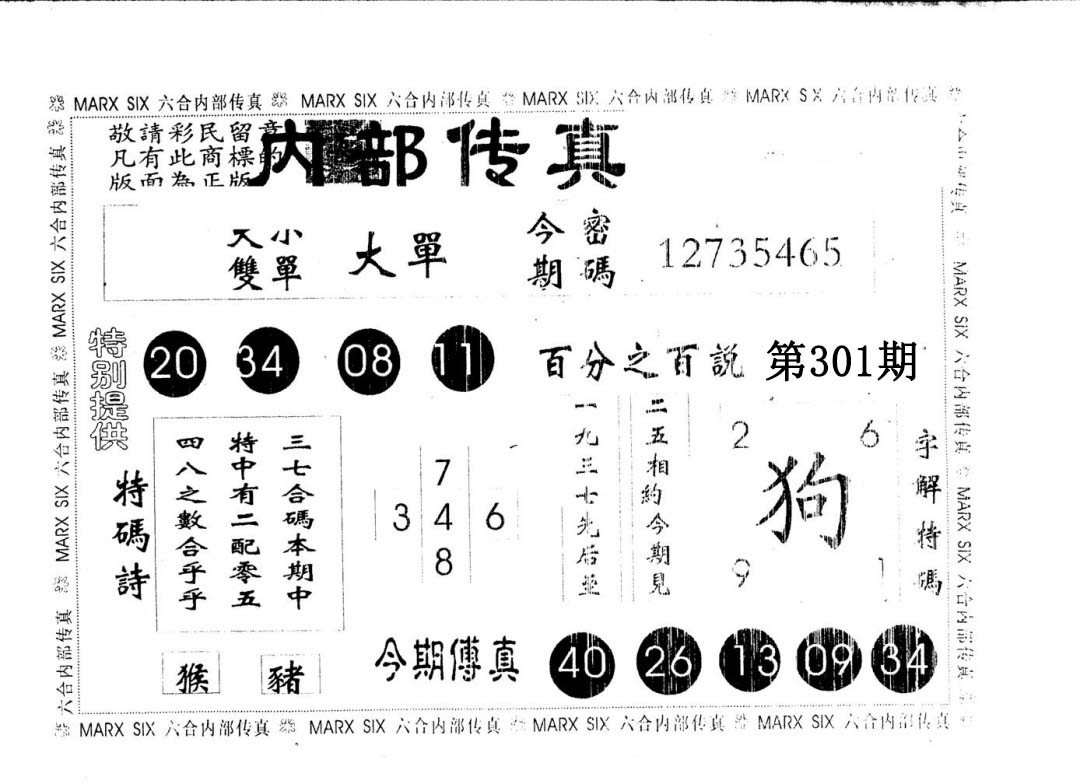 MARX SIX 六合内部传真 MARX SIX 六合内部传真 MARX SIX 六合内部传真 MARX SIX 六合内部传真
敬請彩民留意
凡有此商標的
版面為正版
内部传真
大小
雙單
大單
今期
密碼
12735465
特别提供
20 34 08 11
百分之百説 第301期
特碼詩
三七合碼本期中
特中有二配零五
四八之數合乎乎
7
3 4 6
8
二五相約今期見
一九三七先后並
2 6
狗
9 1
字解特碼
猴 豬
今期傳真
40 26 13 09 34
MARX SIX 六合内部传真 MARX SIX 六合内部传真 MARX SIX 六合内部传真 MARX SIX 六合内部传真
六合内部传真 MARX SIX 六合内部传真 MARX SIX 六合内部传真 MARX SIX 六合内部传真
MARX SIX 六合内部传真 MARX SIX 六合内部传真